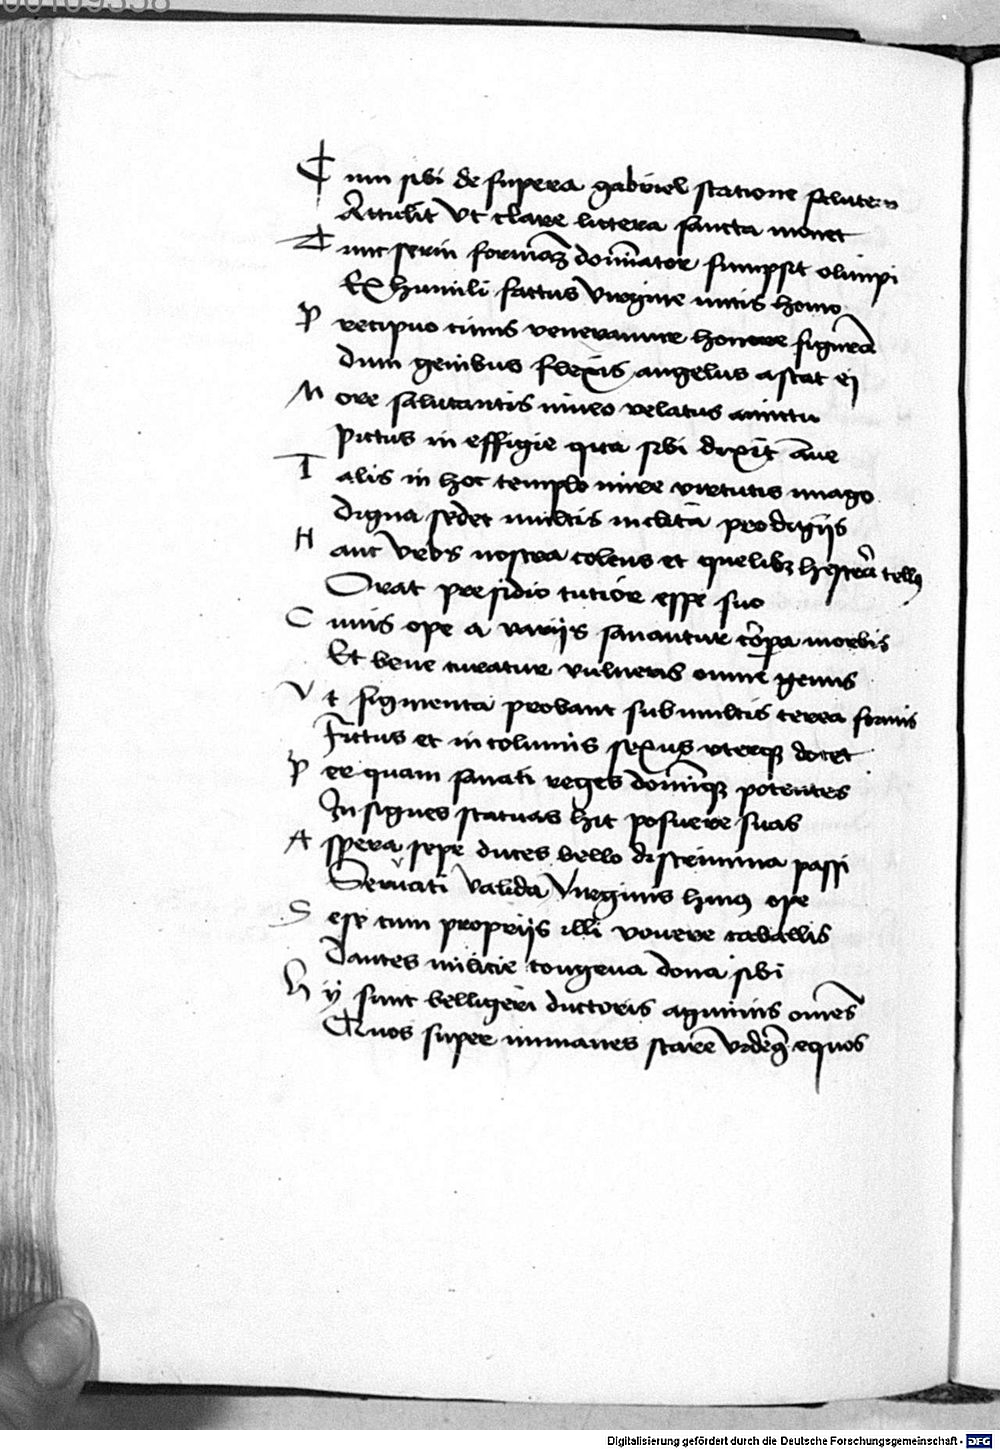 Cum sibi de supera gabriel statione salutem
Attulit Vt clare littera sancta monet
Tunc serui formā dominator sumpsit olimpi
Ex humili factus virgine mitis homo
Precipuo cuius venerantur honore figurā
dum genibus flexis angelus astat ei
More salutantis niueo velatus amictu
Pictus in effigie qua sibi dixit Aue
Talis in hoc templo mire virtutis imago
Digna sedet multis inclita prodigijs
Hanc Vrbs nostra colens et quelibꝫ tellꝰ
Orat presidio tutior esse suo
Cuius ope a varijs sanantur corpa morbis
Et bene curatur vulneris omne genus
Vt figmenta probant sub multis cerea formis
Fictus et incolumis sexus vterqꝫ docet
Per quam sanati reges dominiqꝫ potentes
Insignes statuas hic posuere suas
Aspera sepe duces bello discrimina passi
Seruati valida Virginis huiꝰ ope
Sese cum proprijs illi vouere caballis
Dantes milicie congrua dona sibi
Hij sunt belligeri ductoris agminis omēs
Quos super immanes stare equos
Digitalisierung gefördert durch die Deutsche Forschungsgemeinschaft - DFG